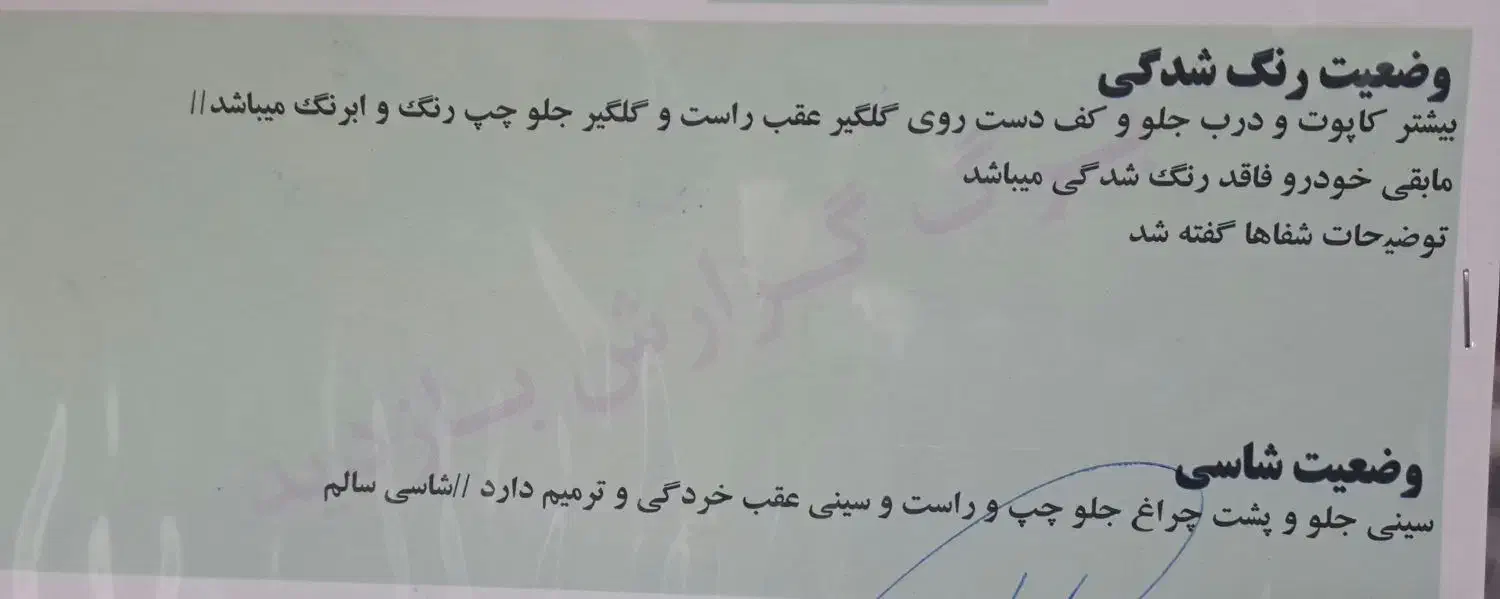 وضعیت رنگ شدگی
بیشتر کاپوت و درب جلو و کف دست روی گلگیر عقب راست و گلگیر جلو چپ رنگ و ابرنگ میباشد//
مابقی خودرو فاقد رنگ شدگی میباشد
توضیحات شفاها گفته شد
برگ گزارش بازدید
وضعیت شاسی
سینی جلو و پشت چراغ جلو چپ و راست و سینی عقب خردگی و ترمیم دارد //شاسی سالم